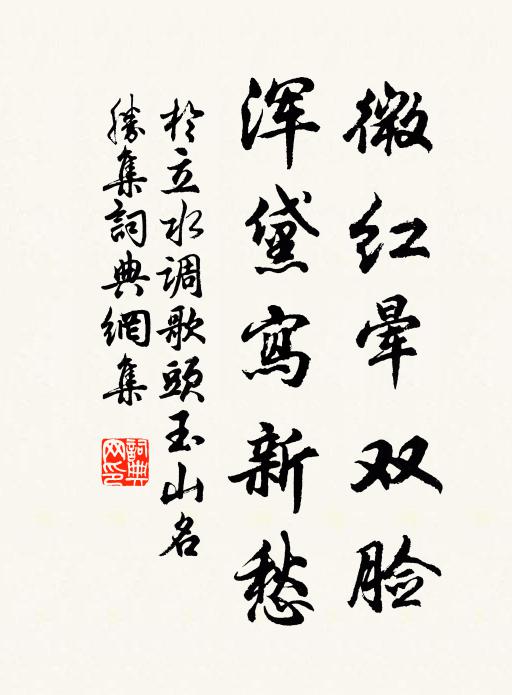 微红晕双脸
浑黛寫新愁
於立水调歌頭玉山名
勝集詞典網集
詞典網印